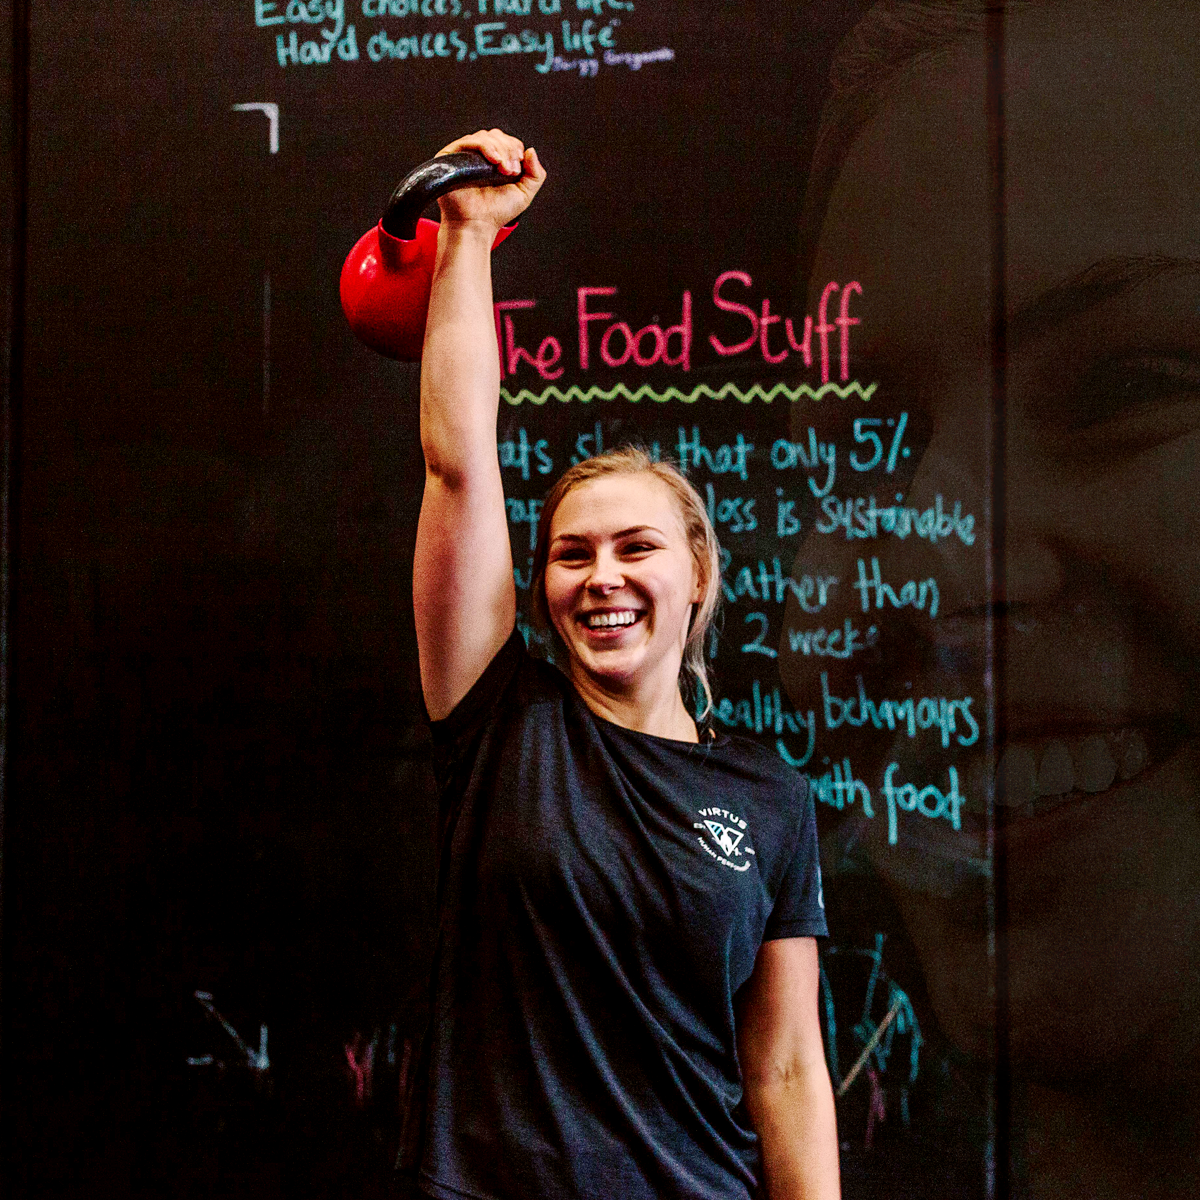 Easy choices, Hard life.
Hard choices, Easy life"
The Food Stuff
that only 5%
loss is sustainable
Rather than
2 weeks
healthy behaviours
with food
VIRTUS
HUMAN